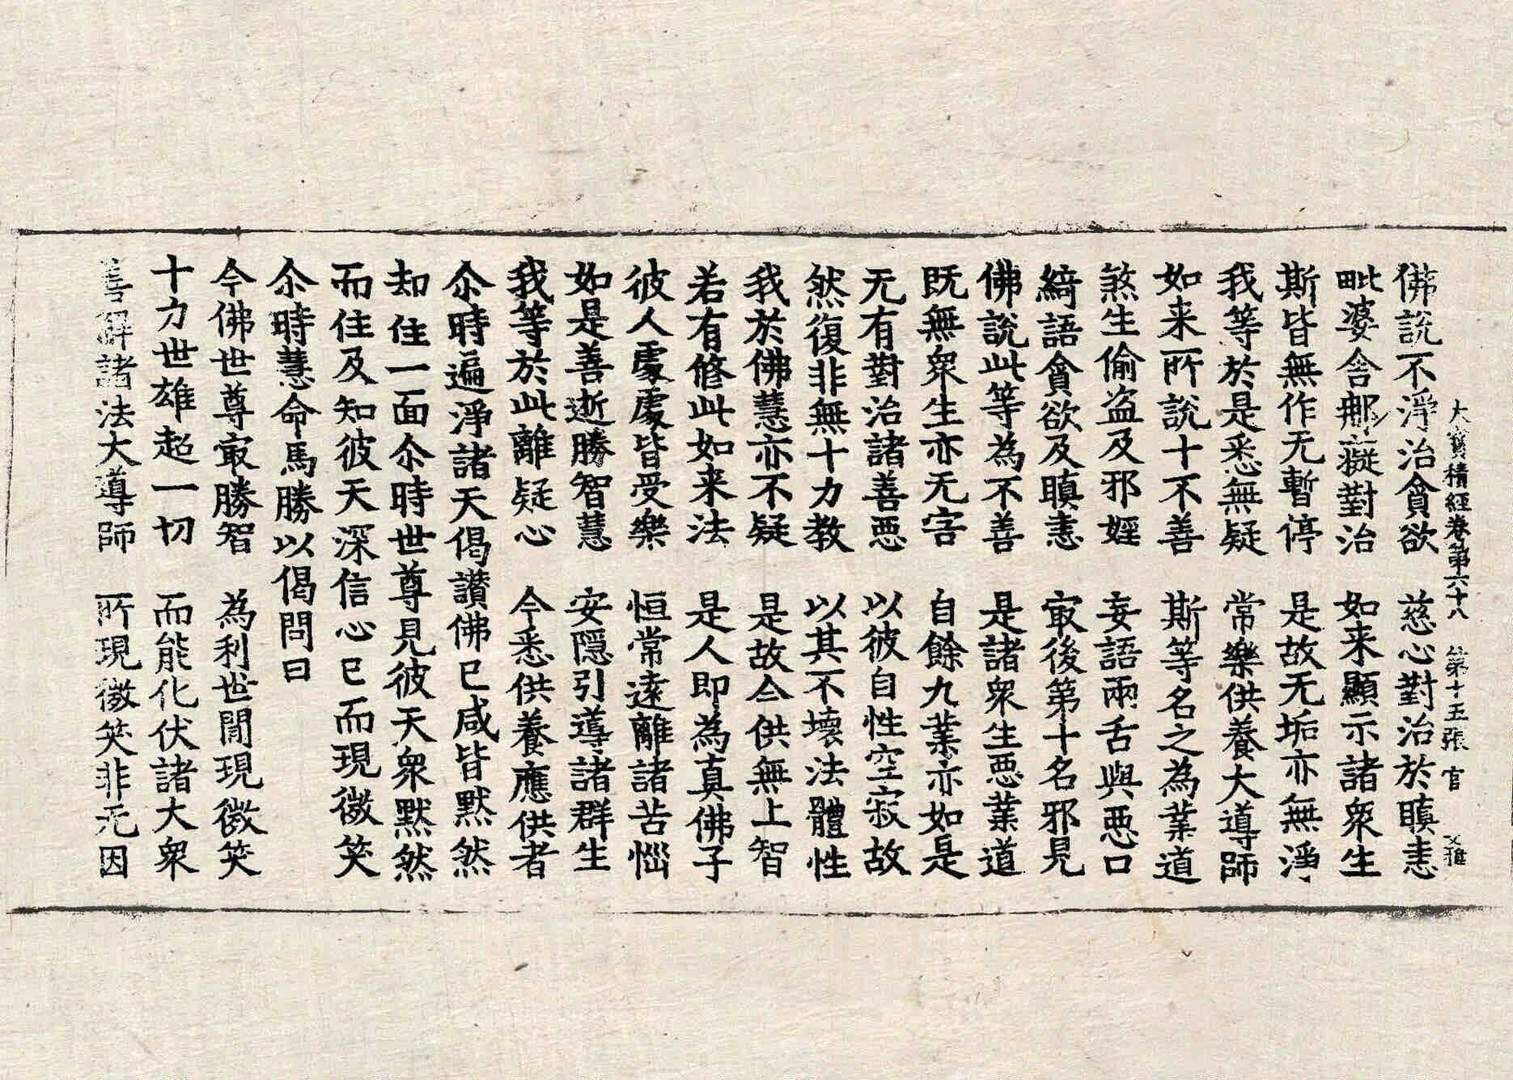 大寶積經卷第六十八 第十五張 官
佛說不淨治貪欲 慈心對治於瞋恚
毗婆舍那癡對治 如来顯示諸衆生
斯皆無作无暫停 是故无垢亦無淨
我等於是悉無疑 常樂供養大導師
如来所說十不善 斯等名之為業道
煞生偷盗及邪婬 妄語兩舌與惡口
綺語貪欲及瞋恚 㝡後第十名邪見
佛說此等為不善 是諸衆生惡業道
既無衆生亦无害 自餘九業亦如是
无有對治諸善惡 以彼自性空寂故
然復非無十力教 以其不壞法體性
我於佛慧亦不疑 是故今供無上智
若有修此如来法 是人即為真佛子
彼人處處皆受樂 恒常遠離諸苦惱
如是善逝勝智慧 安隱引導諸群生
我等於此離疑心 今悉供養應供者
尒時遍淨諸天偈讚佛已咸皆默然
却住一面尒時世尊見彼天衆默然
而住及知彼天深信心已而現微笑
尒時慧命馬勝以偈問曰
今佛世尊㝡勝智 為利世間現微笑
十力世雄超一切 而能化伏諸大衆
善解諸法大導師 所現微笑非无因